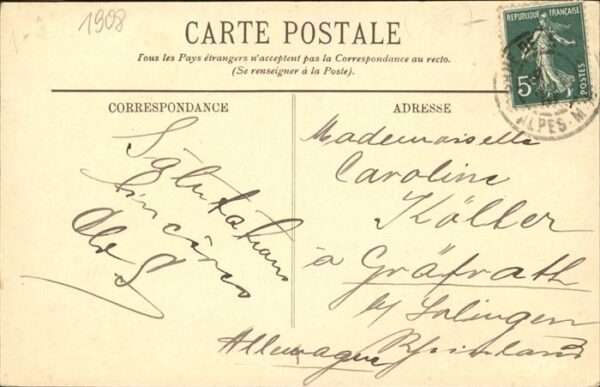 1908
CARTE POSTALE
Tous les Pays étrangers n'acceptent pas la Correspondance au recto.
(Se renseigner à la Poste).
REPUBLIQUE FRANÇAISE
5c
POSTES
ALPES-M
CORRESPONDANCE
ADRESSE
Salutations
sincères
Mademoiselle
Caroline
Köller
à Gräfrath
b/ Solingen
Allemagne Rheinland